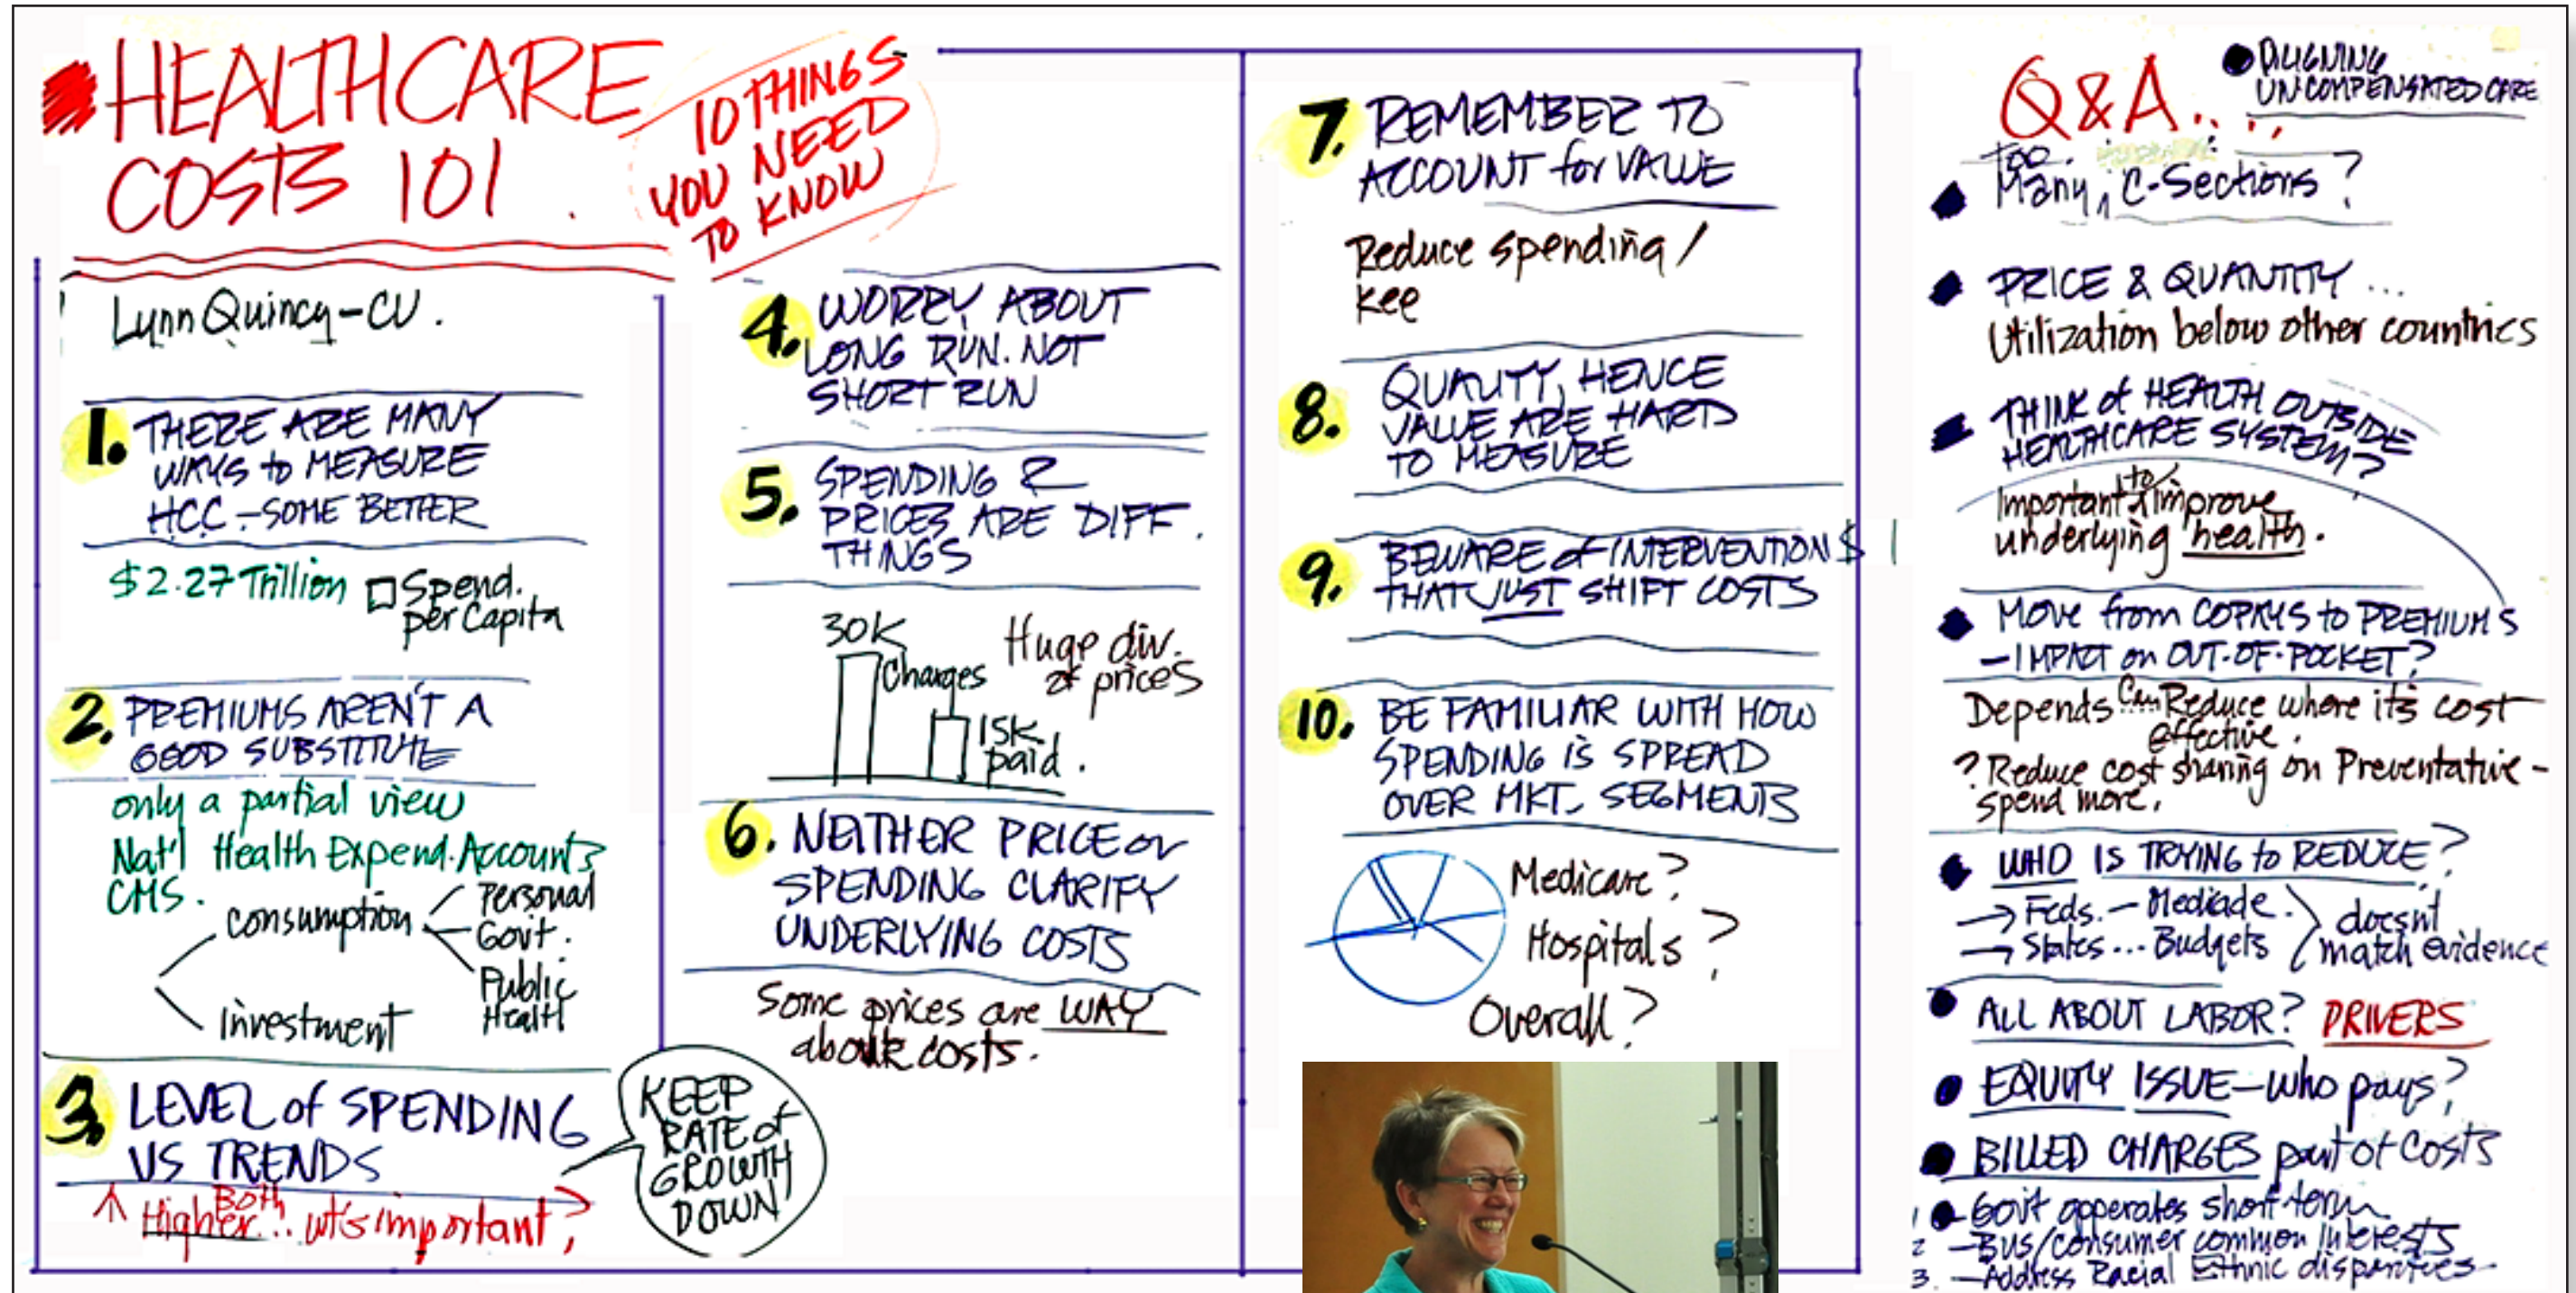 HEALTHCARE
COSTS 101
10 THINGS
YOU NEED
TO KNOW
Lynn Quincy-CU.
1. THERE ARE MANY
WAYS to MEASURE
HCC - SOME BETTER
$2.27 Trillion Spend.
per Capita
2. PREMIUMS AREN'T A
GOOD SUBSTITUTE
only a partial view
Nat'l Health Expend. Accounts
CMS.
Consumption
Personal
Gov't.
Public
Health
investment
3. LEVEL of SPENDING
VS TRENDS
Both
Higher...
important?
KEEP
RATE of
GROWTH
DOWN
4. WORRY ABOUT
LONG RUN. NOT
SHORT RUN
5. SPENDING &
PRICES ARE DIFF.
THINGS
30K
Charges
15K
paid.
Huge div.
of prices
6. NEITHER PRICE or
SPENDING CLARIFY
UNDERLYING COSTS
Some prices are WAY
costs.
7. REMEMBER TO
ACCOUNT for VALUE
Reduce spending /
kee
8. QUALITY, HENCE
VALUE ARE HARD
TO MEASURE
9. BEWARE of INTERVENTION$
THAT JUST SHIFT COSTS
10. BE FAMILIAR WITH HOW
SPENDING is SPREAD
OVER MKT. SEGMENTS
Medicare?
Hospitals?
Overall?
Q&A....
UNCOMPENSATED CARE
Too
Many, C-Sections?
PRICE & QUANTITY...
Utilization below other countries
THINK of HEALTH OUTSIDE
HEALTHCARE SYSTEM?
Important to improve
underlying health.
MOVE from COPAYS to PREMIUMS
- IMPACT on OUT-OF-POCKET?
Depends Can Reduce where it's cost
effective.
? Reduce cost sharing on Preventative -
spend more.
WHO IS TRYING to REDUCE?
→ Feds. - Medicade.
→ States... Budgets
doesn't
match evidence
ALL ABOUT LABOR? DRIVERS
EQUITY ISSUE - who pays?
BILLED CHARGES part of costs
1 - Gov't opperates short term
2 - Bus/consumer common interests
3. - Address Racial Ethnic disparities